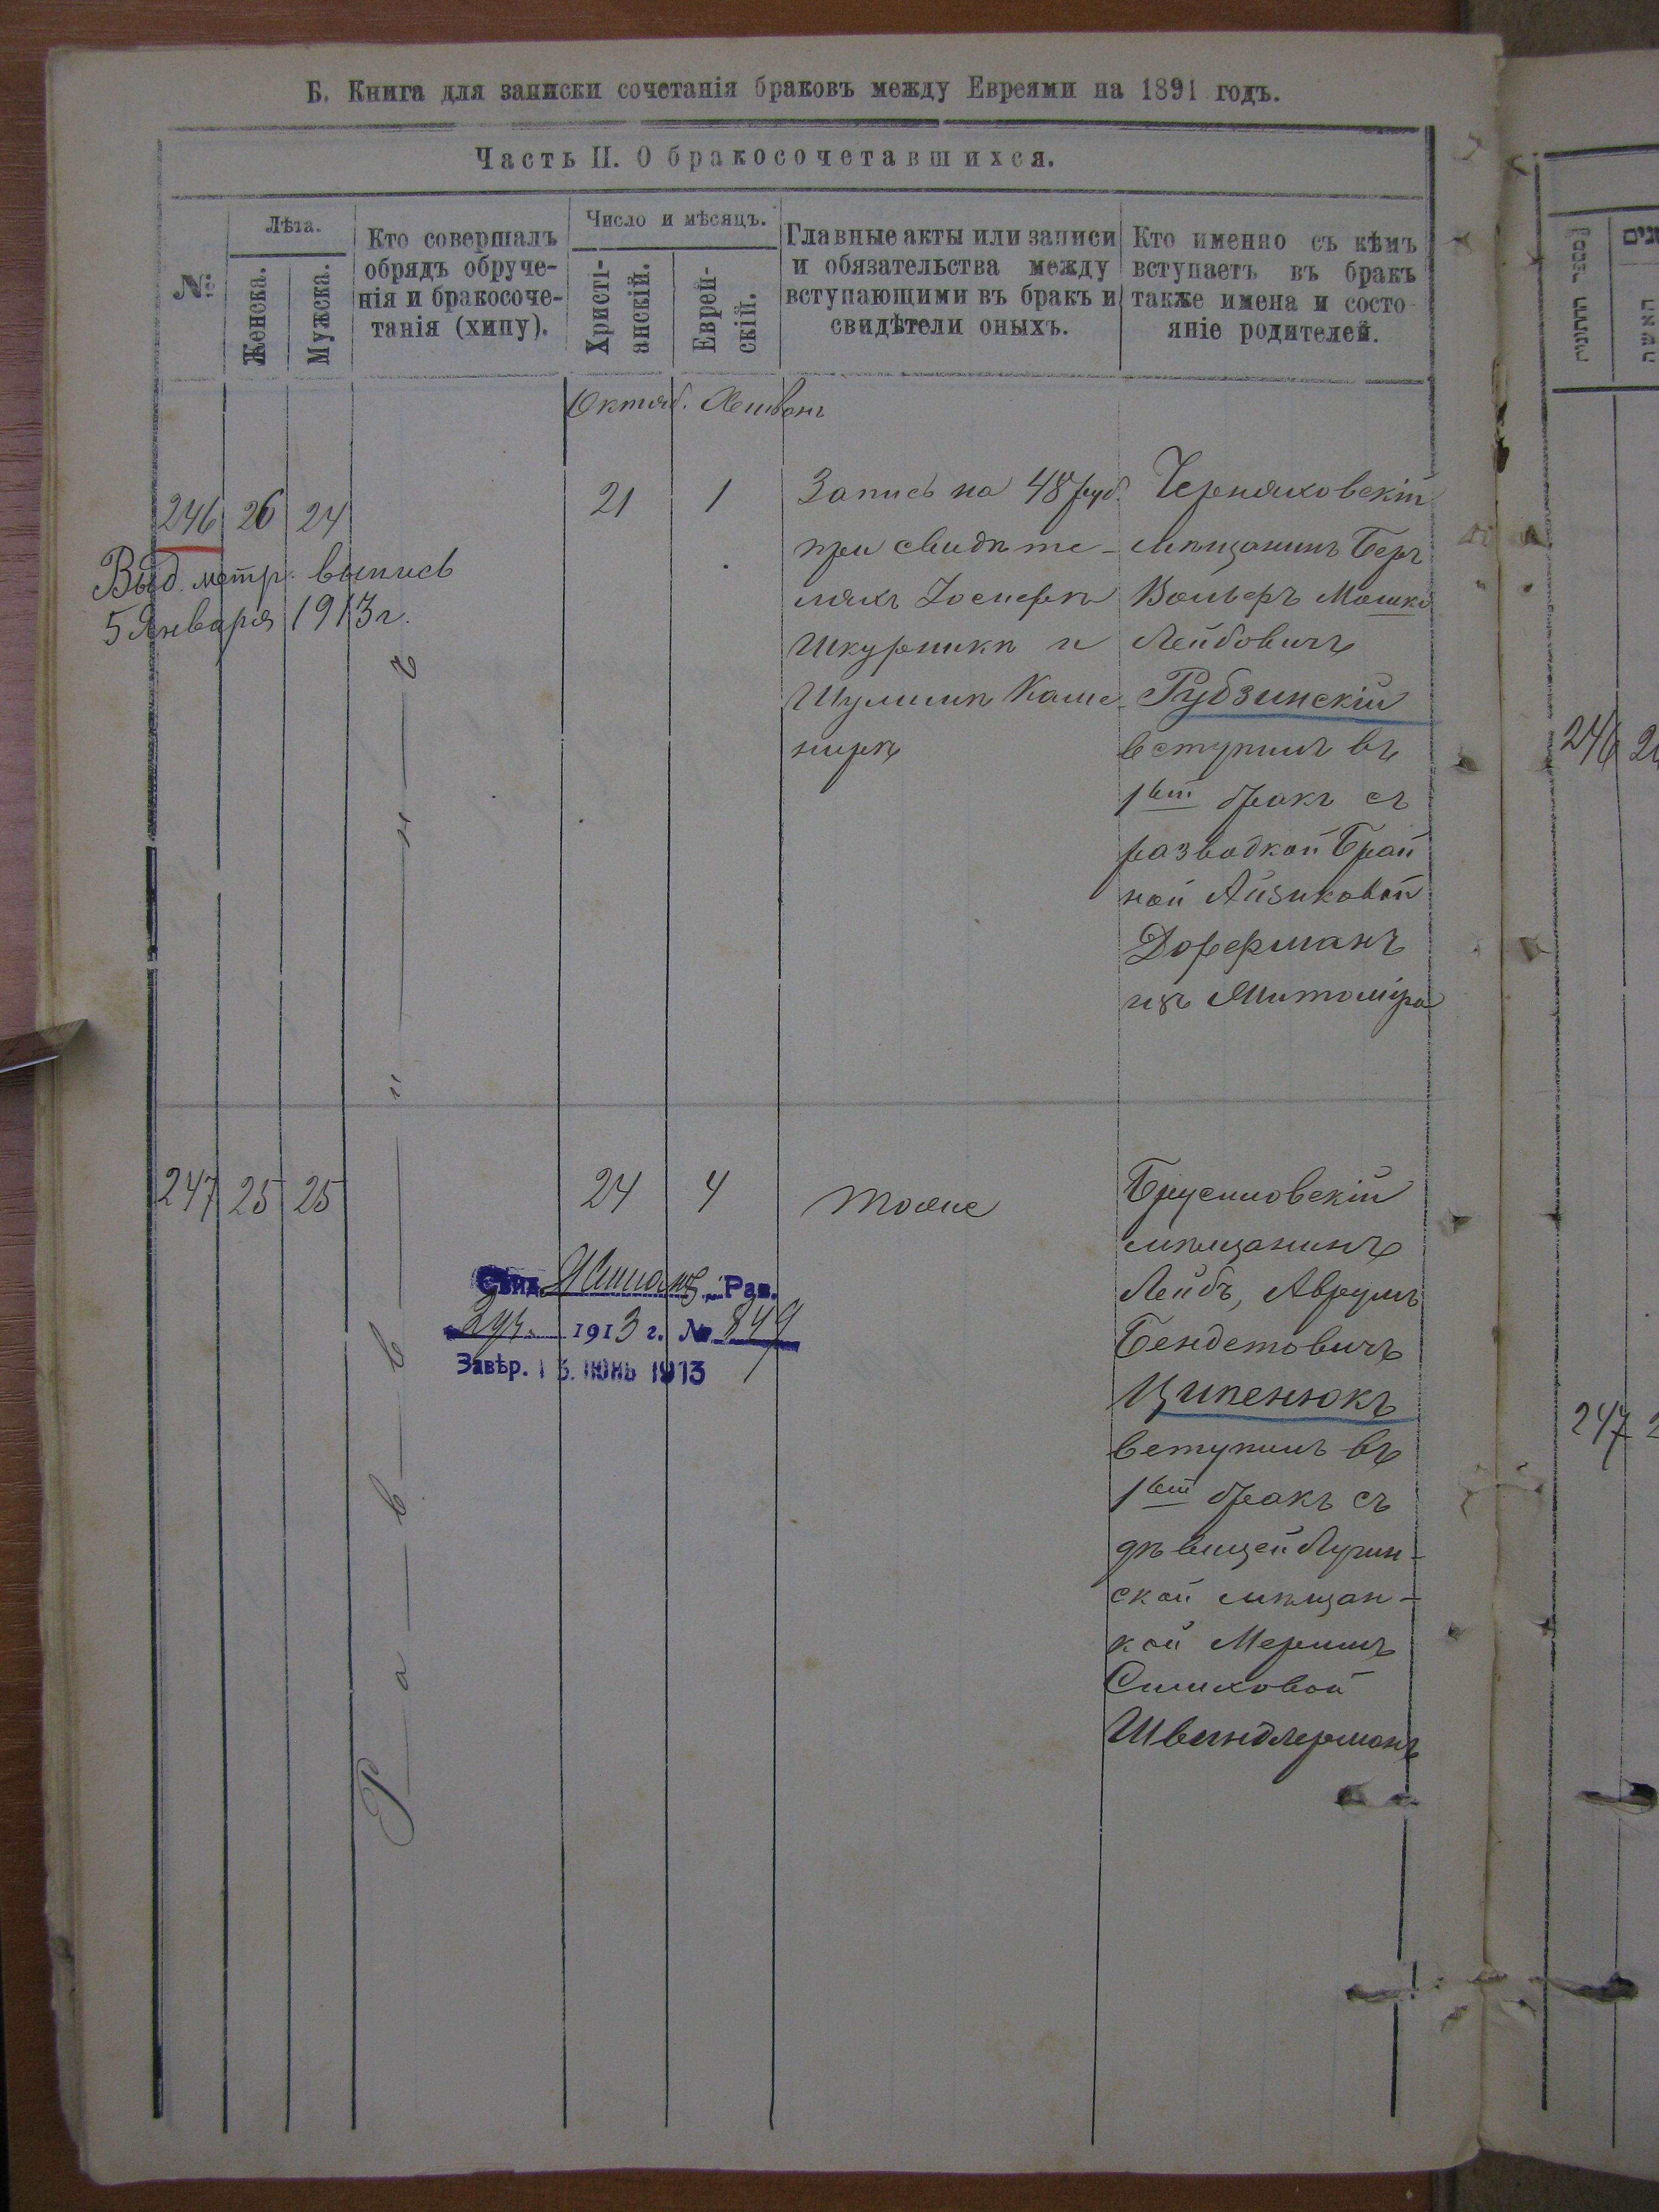 Б. Книга для записки сочетанія браковъ между Евреями на 1891 годъ.
Часть II. О бракосочетавшихся.
№
Лѣта.
Женска.
Мужска.
Кто совершалъ
обрядъ обруче-
нія и бракосоче-
танія (хипу).
Число и мѣсяцъ.
Христі-
анскій.
Еврей-
скій.
Главные акты или записи
и обязательства между
вступающими въ бракъ и
свидѣтели оныхъ.
Кто именно съ кѣмъ
вступаетъ въ бракъ
также имена и состо-
яніе родителей.
Октяб. Хешванъ
246 26 24
21 1
Выд. метр. выпись
5 Января 1913 г.
Запись на 48 руб.
при свидѣте-
ляхъ Іосифѣ
Шкурникѣ и
Шулимѣ Каме-
нирѣ
Черняховскій
мѣщанинъ Беръ
Вольфъ Мошко
Лейбовичъ
Рубзинскій
вступилъ въ
1вый бракъ съ
разводкой Брай
ной Айзиковой
Дорфманъ
изъ Житоміра
Раввинъ
247 25 25
24 4
тоже
Брусиловскій
мѣщанинъ
Лейбъ, Аврумъ
Бендетовичъ
Ципенюкъ
вступилъ въ
1вый бракъ съ
дѣвицей Лугин-
ской мѣщан-
кой
Швиндлерманъ
Рав.
1913 г. № 849
Завѣр. 13. ІЮНЬ 1913
המספר החתונה
האשה
246
247